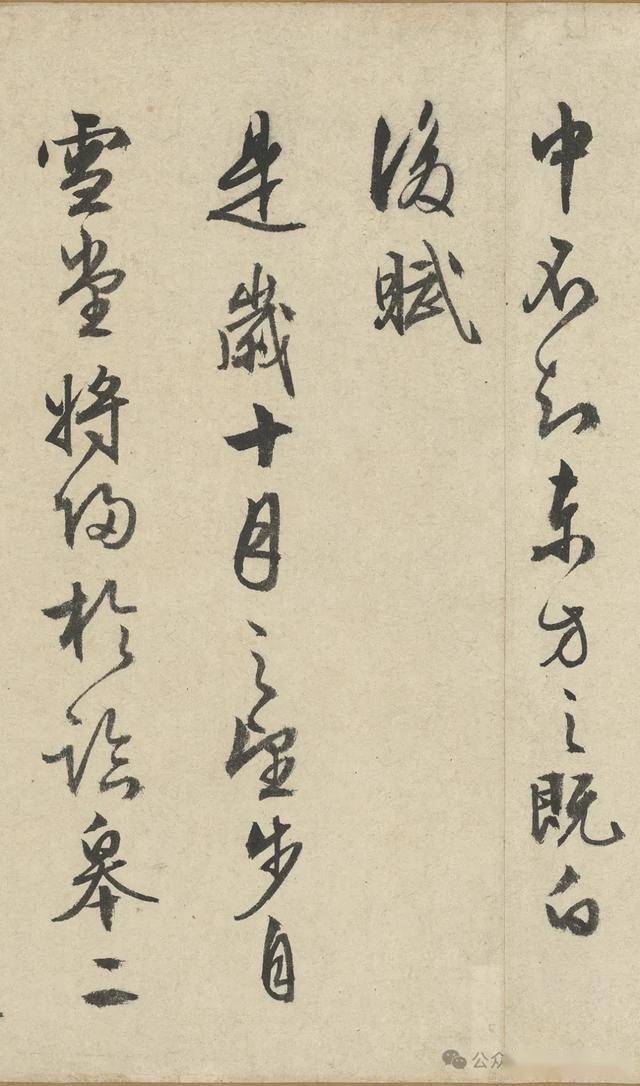 中不知東方之既白
後賦
是歲十月之望步自
雪堂將歸於臨皋二
公众